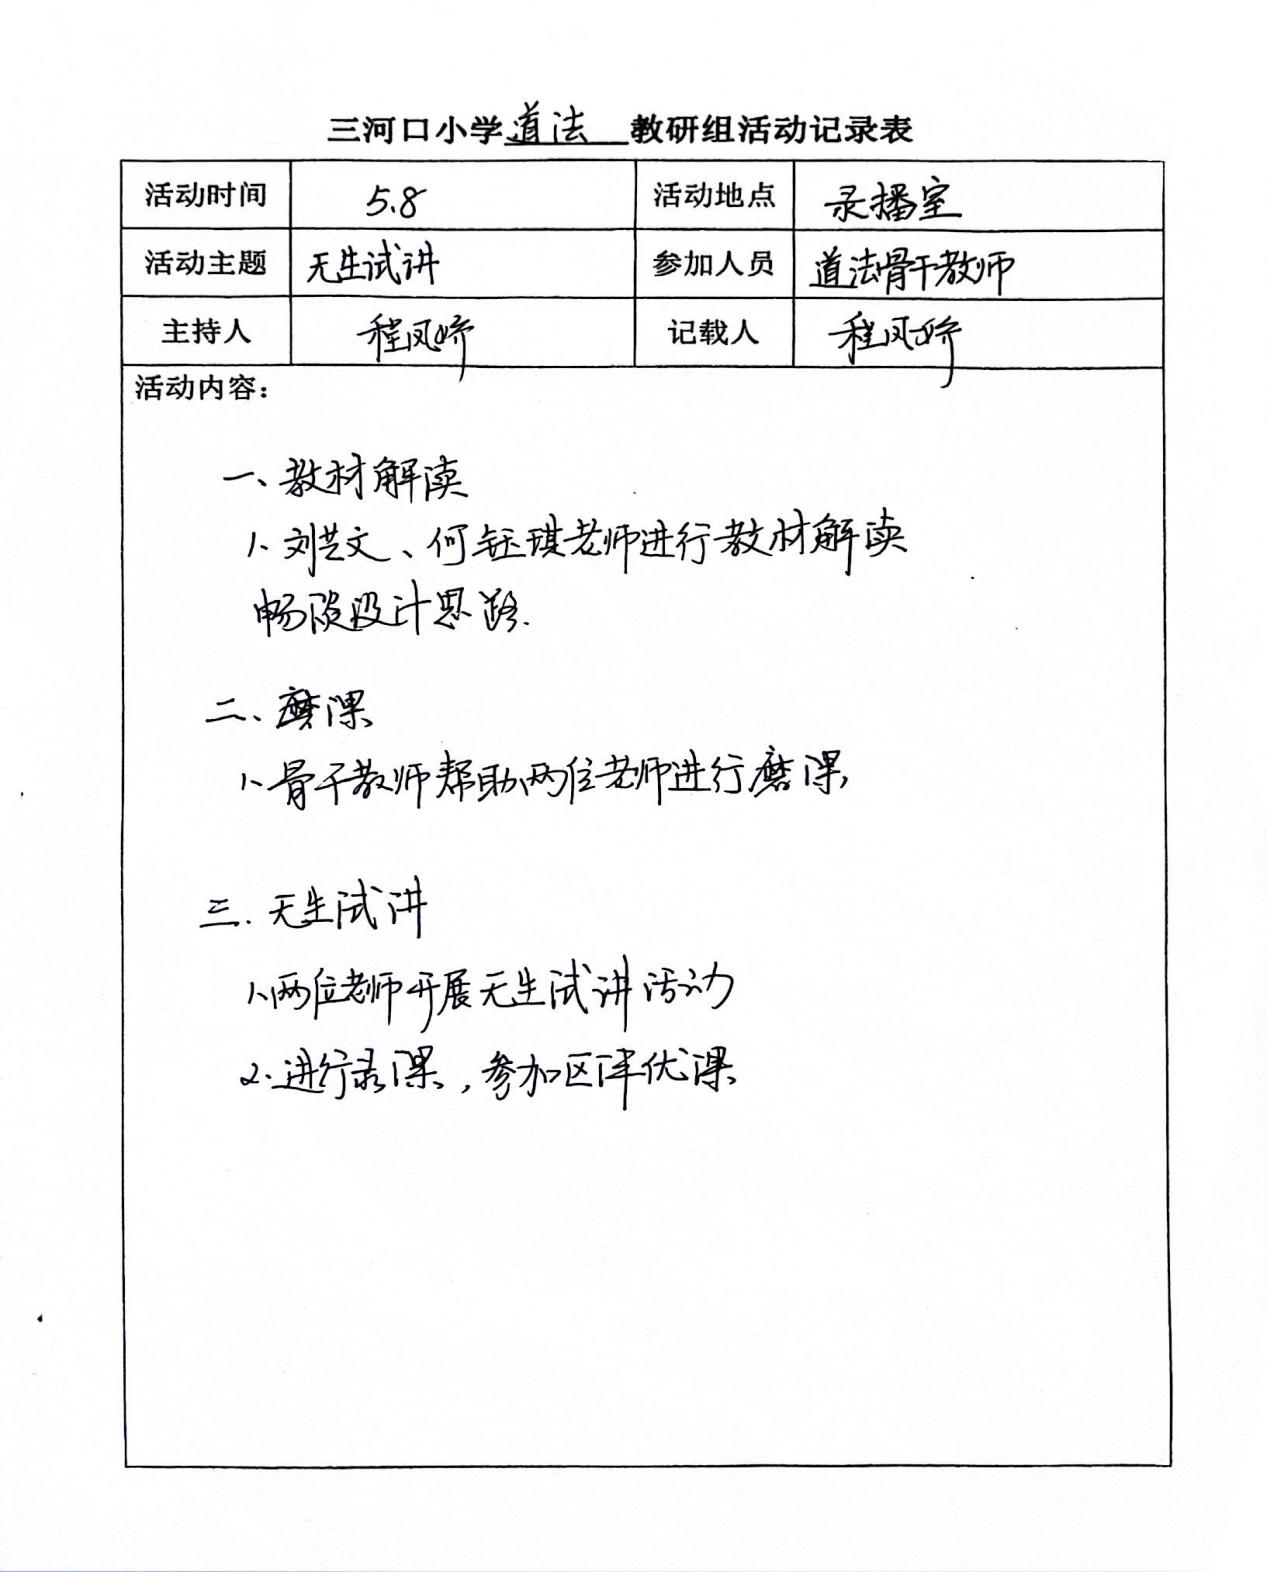 三河口小学道法 教研组活动记录表
活动时间 5.8 活动地点 录播室
活动主题 无生试讲 参加人员 道法骨干教师
主持人 程凤娇 记载人 程凤娇
活动内容：
一、教材解读
1、刘艺文、何钰琪老师进行教材解读
畅谈设计思路.
二、磨课
1、骨干教师帮助两位老师进行磨课
三.无生试讲
1、两位老师开展无生试讲活动
2.进行录课，参加区评优课